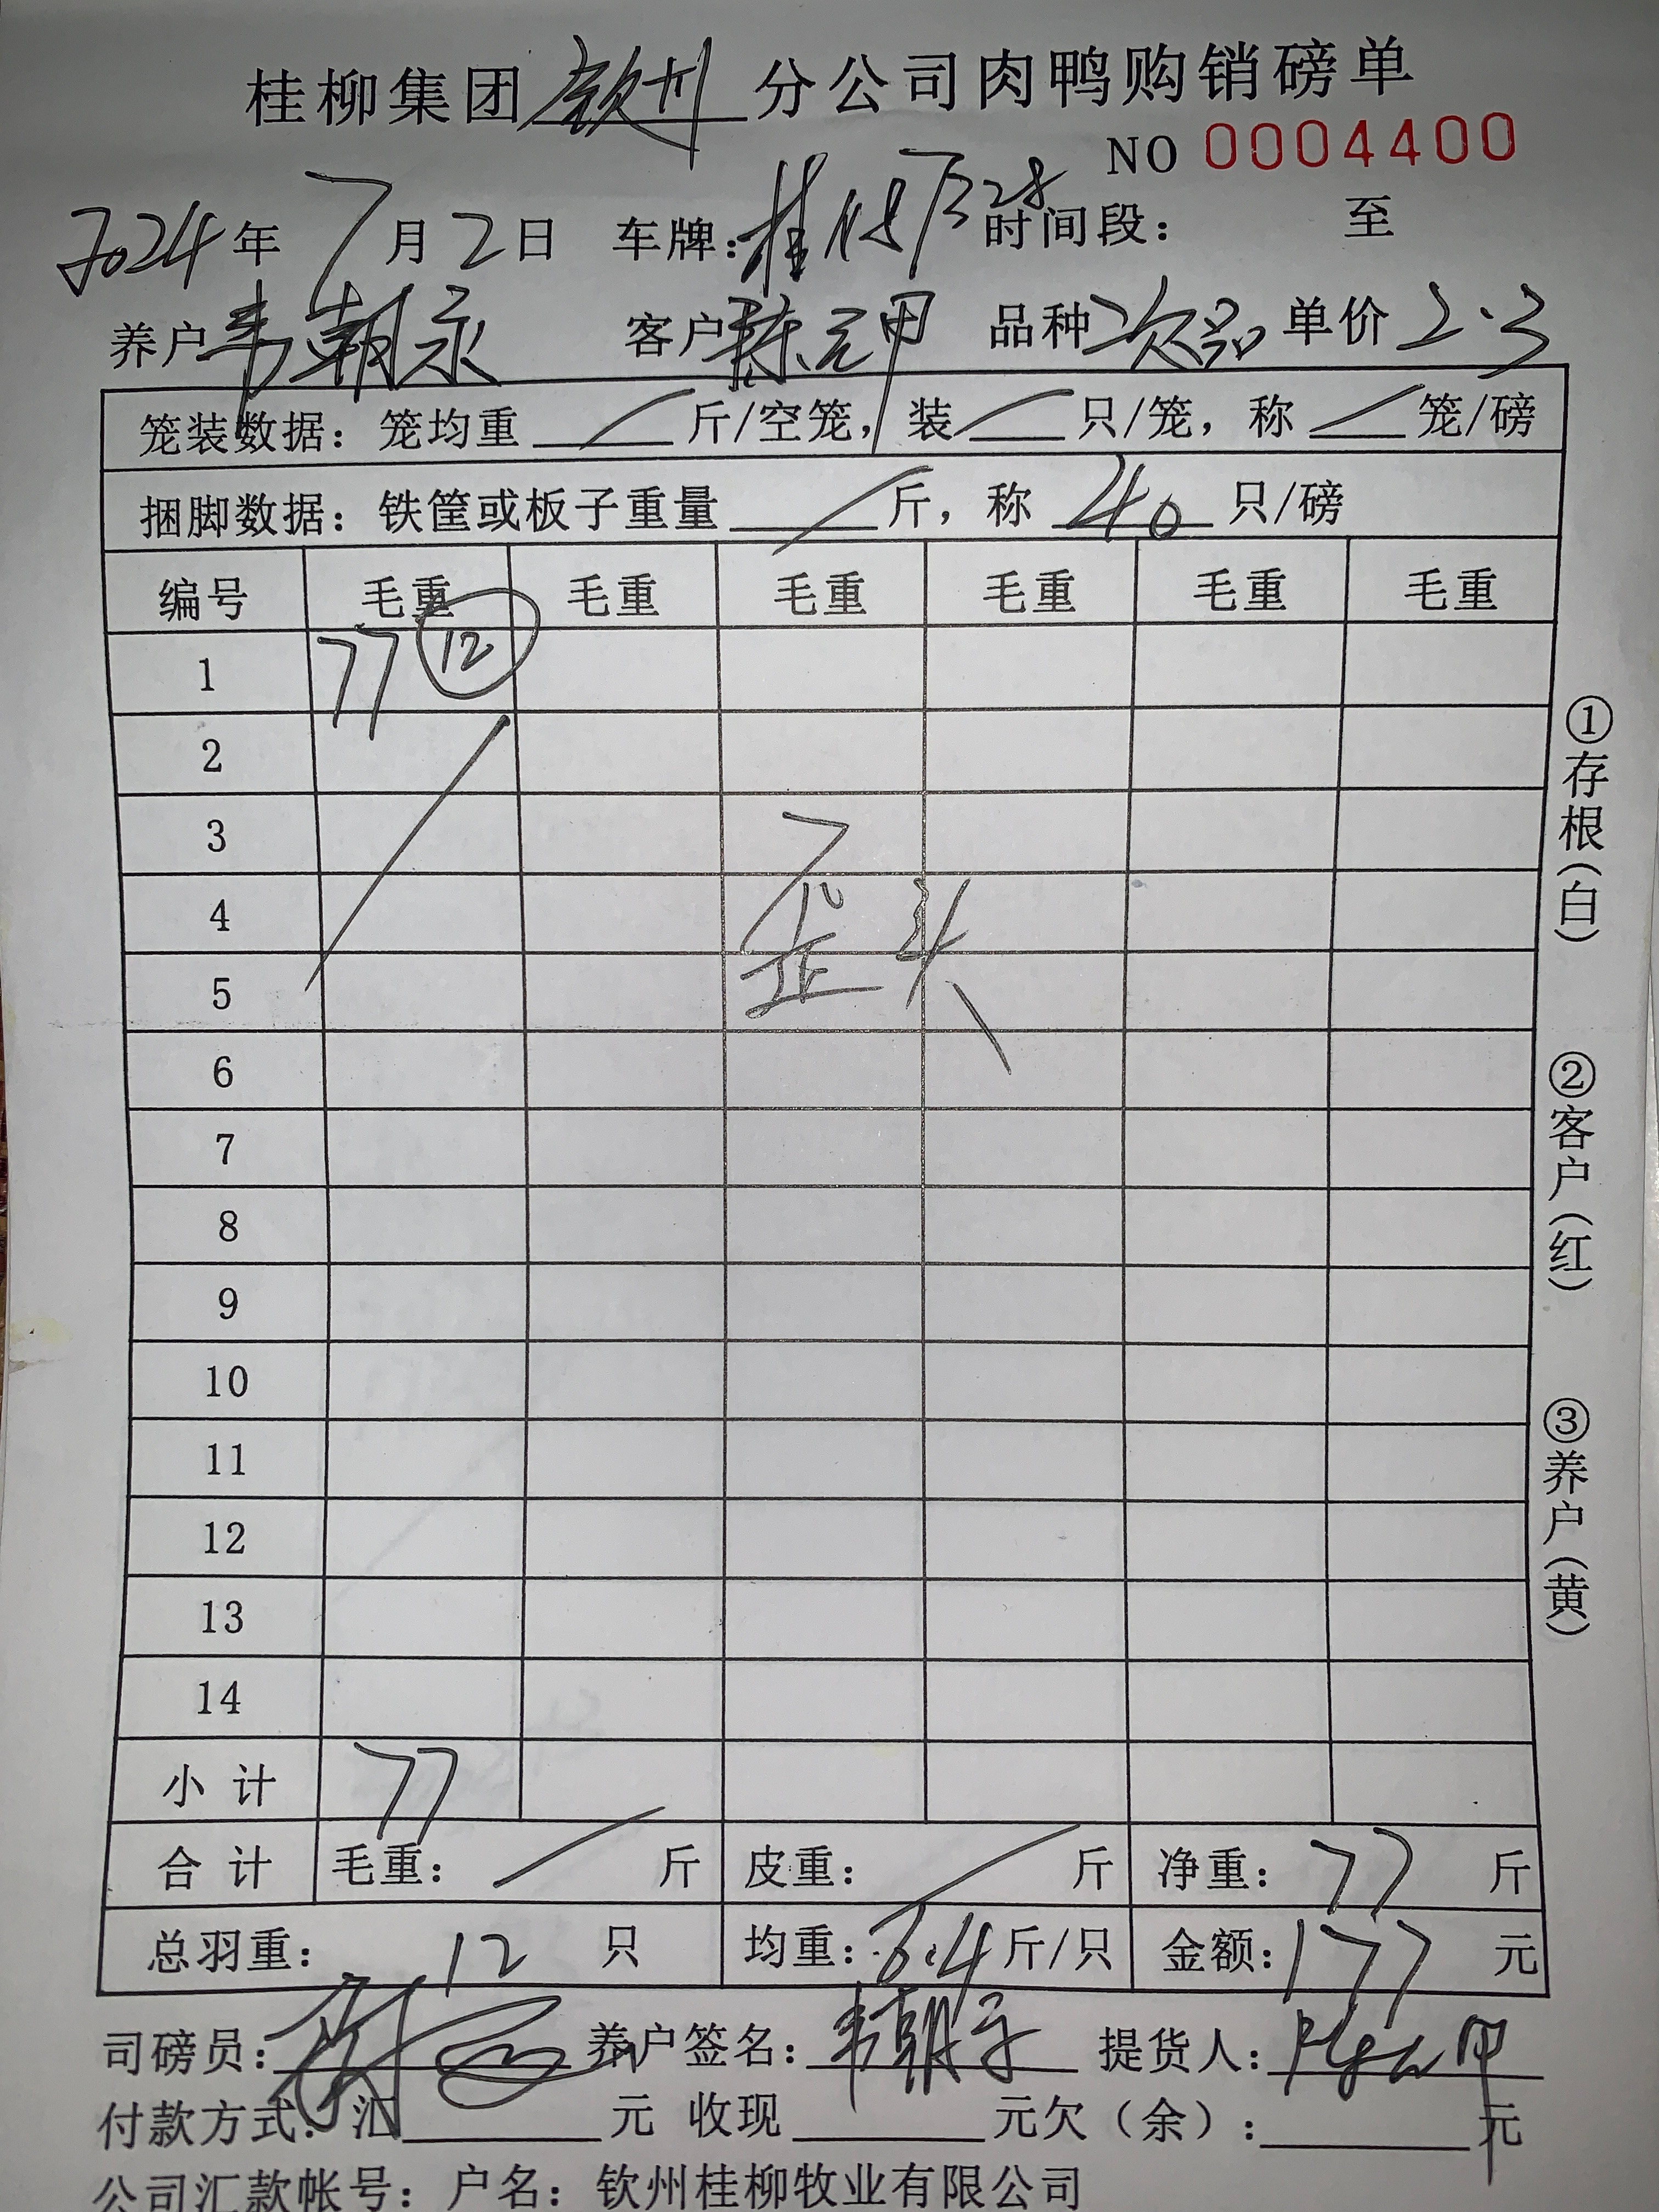 桂柳集团 钦州 分公司肉鸭购销磅单
NO 0004400
2024年 7月 2日 车牌：桂 时间段： 至
养户 韦朝永 客户 陈元甲 品种 次品 单价 2.3
笼装数据：笼均重 / 斤/空笼，装 / 只/笼，称 / 笼/磅
捆脚数据：铁筐或板子重量 / 斤，称 40 只/磅
编号 毛重 毛重 毛重 毛重 毛重 毛重
1 77 ⑫
2
3
4
歪头
5
6
7
8
9
10
11
12
13
14
小计 77
合计 毛重： / 斤 皮重： / 斤 净重： 77 斤
总羽重： 12 只 均重：6.4 斤/只 金额：177 元
司磅员： 养户签名：韦朝永 提货人：陈元甲
付款方式：汇 元 收现 元欠（余）： 元
公司汇款帐号：户名：钦州桂柳牧业有限公司
①存根（白）
②客户（红）
③养户（黄）